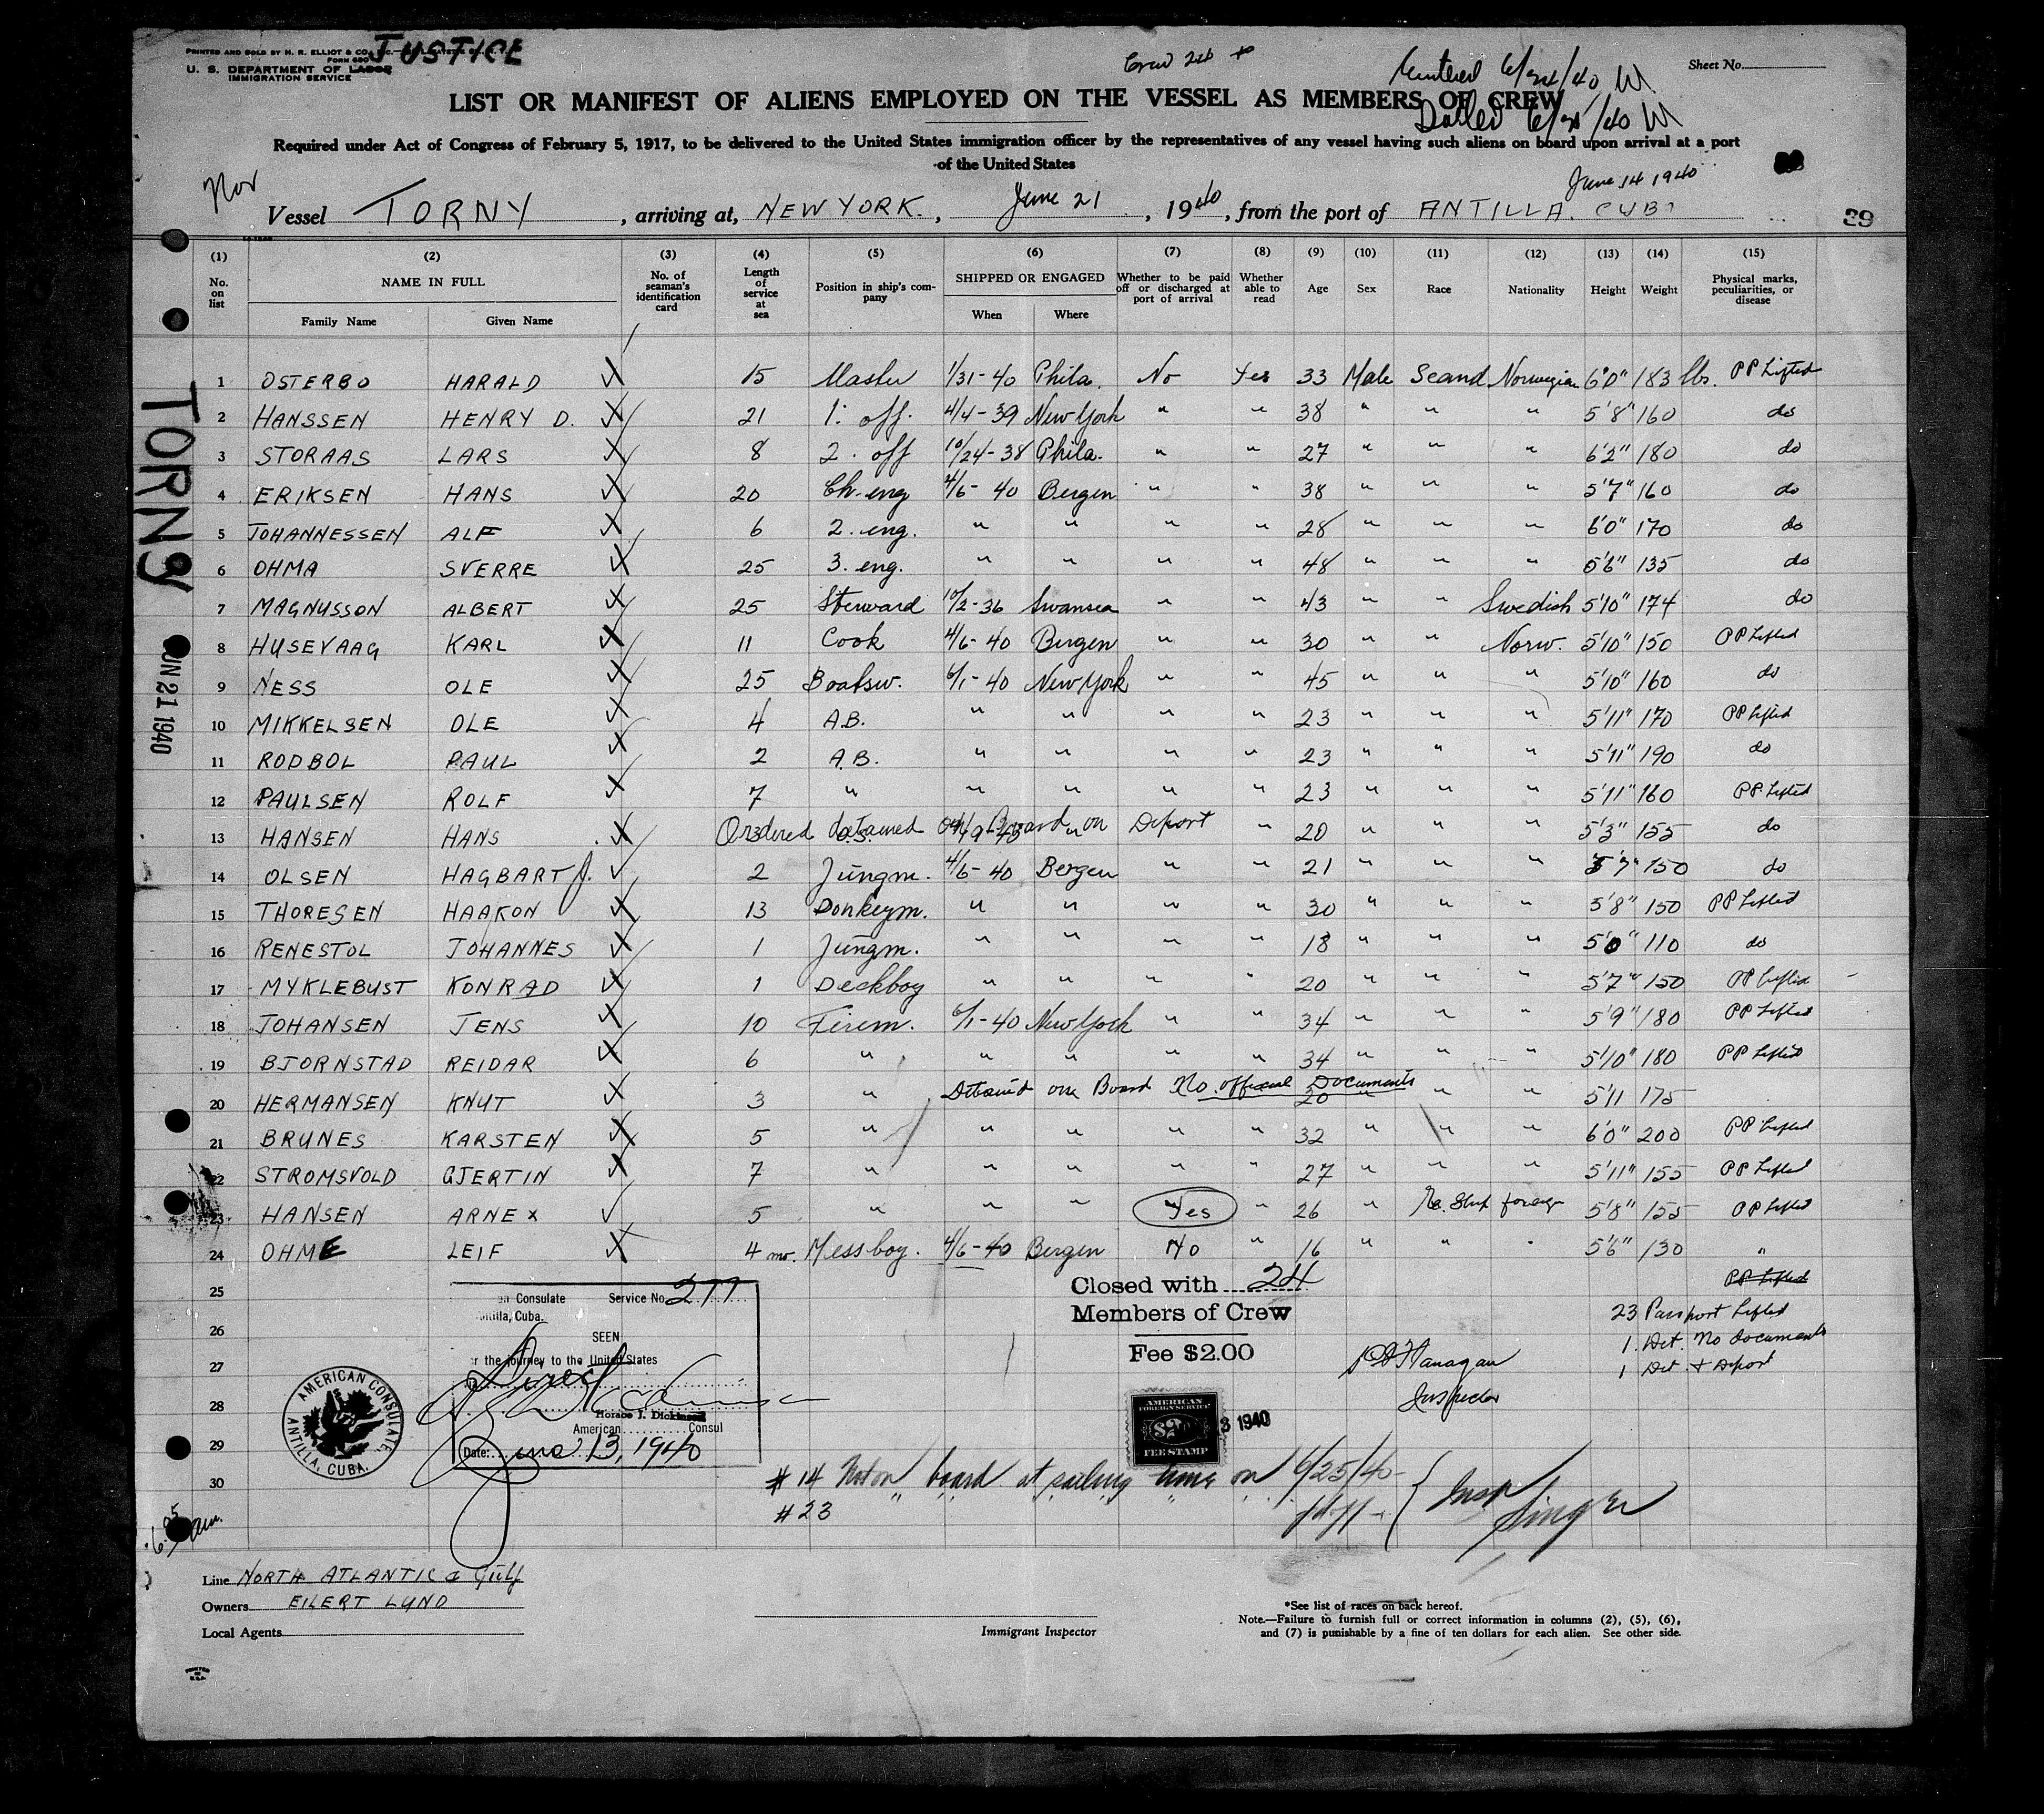 PRINTED AND SOLD BY H. R. ELLIOT & CO.
JUSTICE
FORM 680
U. S. DEPARTMENT OF LABOR
IMMIGRATION SERVICE
Crew 24
6/24/40
6/25/40
Sheet No.
LIST OR MANIFEST OF ALIENS EMPLOYED ON THE VESSEL AS MEMBERS OF CREW
Required under Act of Congress of February 5, 1917, to be delivered to the United States immigration officer by the representatives of any vessel having such aliens on board upon arrival at a port
of the United States
Nor
June 14 1940
Vessel TORNY, arriving at, NEW YORK., June 21, 1940, from the port of ANTILLA. CUBA
39
(1) (2) (3) (4) (5) (6) (7) (8) (9) (10) (11) (12) (13) (14) (15)
No. on list
NAME IN FULL
Family Name Given Name
No. of seaman's identification card
Length of service at sea
Position in ship's company
SHIPPED OR ENGAGED
When Where
Whether to be paid off or discharged at port of arrival
Whether able to read
Age Sex Race Nationality Height Weight
Physical marks, peculiarities, or disease
1 OSTERBO HARALD 15 Master 1/31-40 Phila. No Yes 33 Male Scand Norwegian 6'0" 183 lbs. PP Lifted
2 HANSSEN HENRY D. 21 1. off. 4/4-39 New York " " 38 " " " 5'8" 160 do
3 STORAAS LARS 8 2. off 10/24-38 Phila. " " 27 " " " 6'2" 180 do
4 ERIKSEN HANS 20 Ch. eng 4/6-40 Bergen " " 38 " " " 5'7" 160 do
5 JOHANNESSEN ALF 6 2. eng. " " " " 28 " " " 6'0" 170 do
6 OHMA SVERRE 25 3. eng. " " " " 48 " " " 5'6" 135 do
7 MAGNUSSON ALBERT 25 Steward 10/2-36 Swansea " " 43 " " Swedish 5'10" 174 do
8 HUSEVAAG KARL 11 Cook 4/6-40 Bergen " " 30 " " Norw. 5'10" 150 PP Lifted
9 NESS OLE 25 Boatsw. 6/1-40 New York " " 45 " " " 5'10" 160 do
10 MIKKELSEN OLE 4 A.B. " " " " 23 " " " 5'11" 170 PP Lifted
11 RODBOL PAUL 2 A.B. " " " " 23 " " " 5'11" 190 do
12 PAULSEN ROLF 7 " " " " " 23 " " " 5'11" 160 PP Lifted
13 HANSEN HANS Ordered detained on Board on Deport " 20 " " " 5'3" 155 do
14 OLSEN HAGBART J. 2 Jungm. 4/6-40 Bergen " " 21 " " " 5'7" 150 do
15 THORESEN HAAKON 13 Donkeym. " " " " 30 " " " 5'8" 150 PP Lifted
16 RENESTOL JOHANNES 1 Jungm. " " " " 18 " " " 5'0" 110 do
17 MYKLEBUST KONRAD 1 Deckboy " " " " 20 " " " 5'7" 150 PP Lifted
18 JOHANSEN JENS 10 Firem. 6/1-40 New York " " 34 " " " 5'9" 180 PP Lifted
19 BJORNSTAD REIDAR 6 " " " " " 34 " " " 5'10" 180 PP Lifted
20 HERMANSEN KNUT 3 " Detained on Board No official Documents 20 " " " 5'11 175
21 BRUNES KARSTEN 5 " " " " " 32 " " " 6'0" 200 PP Lifted
22 STROMSVOLD GJERTIN 7 " " " " " 27 " " " 5'11" 155 PP Lifted
23 HANSEN ARNE x 5 " " " Yes " 26 " Re. Ship foreign 5'8" 155 PP Lifted
24 OHME LEIF 4 mo. Messboy. 4/6-40 Bergen No " 16 " " " 5'6" 130 "
25
26
27
28
29
30
PP Lifted
23 Passport Lifted
1. Det. No documents
1 Det & Deport
Closed with 24
Members of Crew
Fee $2.00
Flanagan
Inspector
en Consulate Service No. 277
Antilla, Cuba.
SEEN
r the journey to the United States
Direct
Horace J. Dickinson
American Consul
Date: June 13, 1940
AMERICAN CONSULATE, ANTILLA, CUBA.
AMERICAN FOREIGN SERVICE
$2
FEE STAMP
3 1940
#14 Not on board at sailing time on 6/25/40
#23 " " " " " "
Insp Singer
TORNY
JUN 21 1940
am.
Line NORTH ATLANTIC & Gulf
Owners EILERT LUND
Local Agents
Immigrant Inspector
*See list of races on back hereof.
Note.—Failure to furnish full or correct information in columns (2), (5), (6),
and (7) is punishable by a fine of ten dollars for each alien. See other side.
PRINTED IN U.S.A.